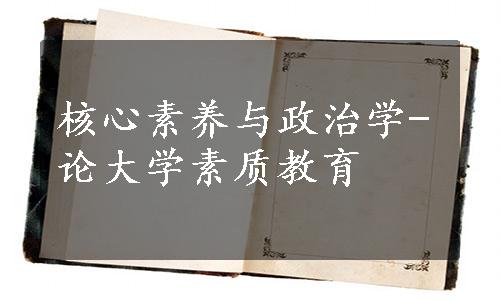 核心素养与政治学-
论大学素质教育